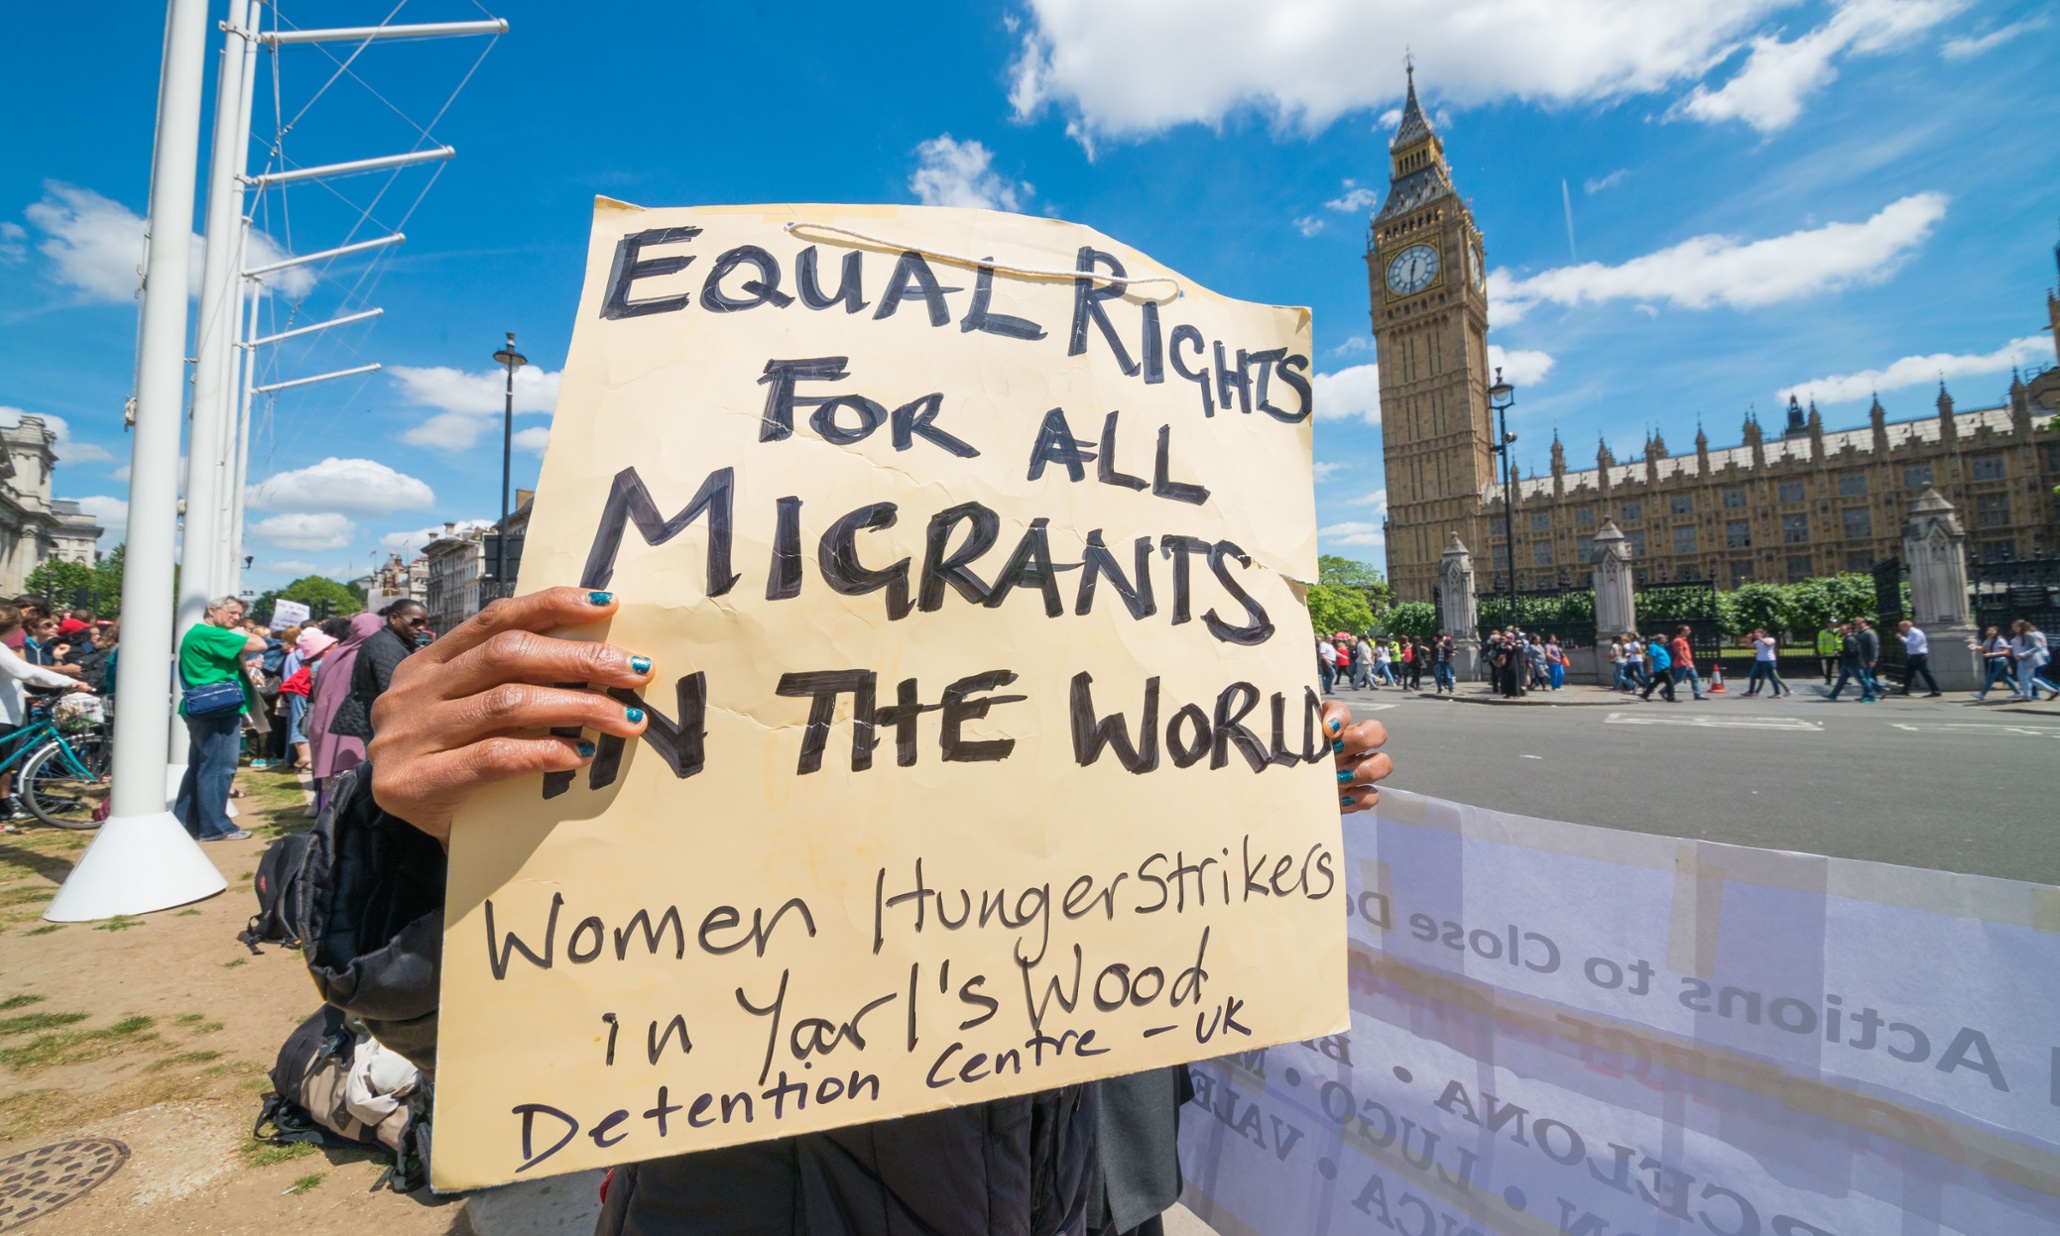 EQUAL RIGHTS
FOR ALL
MIGRANTS
IN THE WORLD
Women Hungerstrikers
in Yarl's Wood
Detention Centre - UK
Actions to Close
LUGO